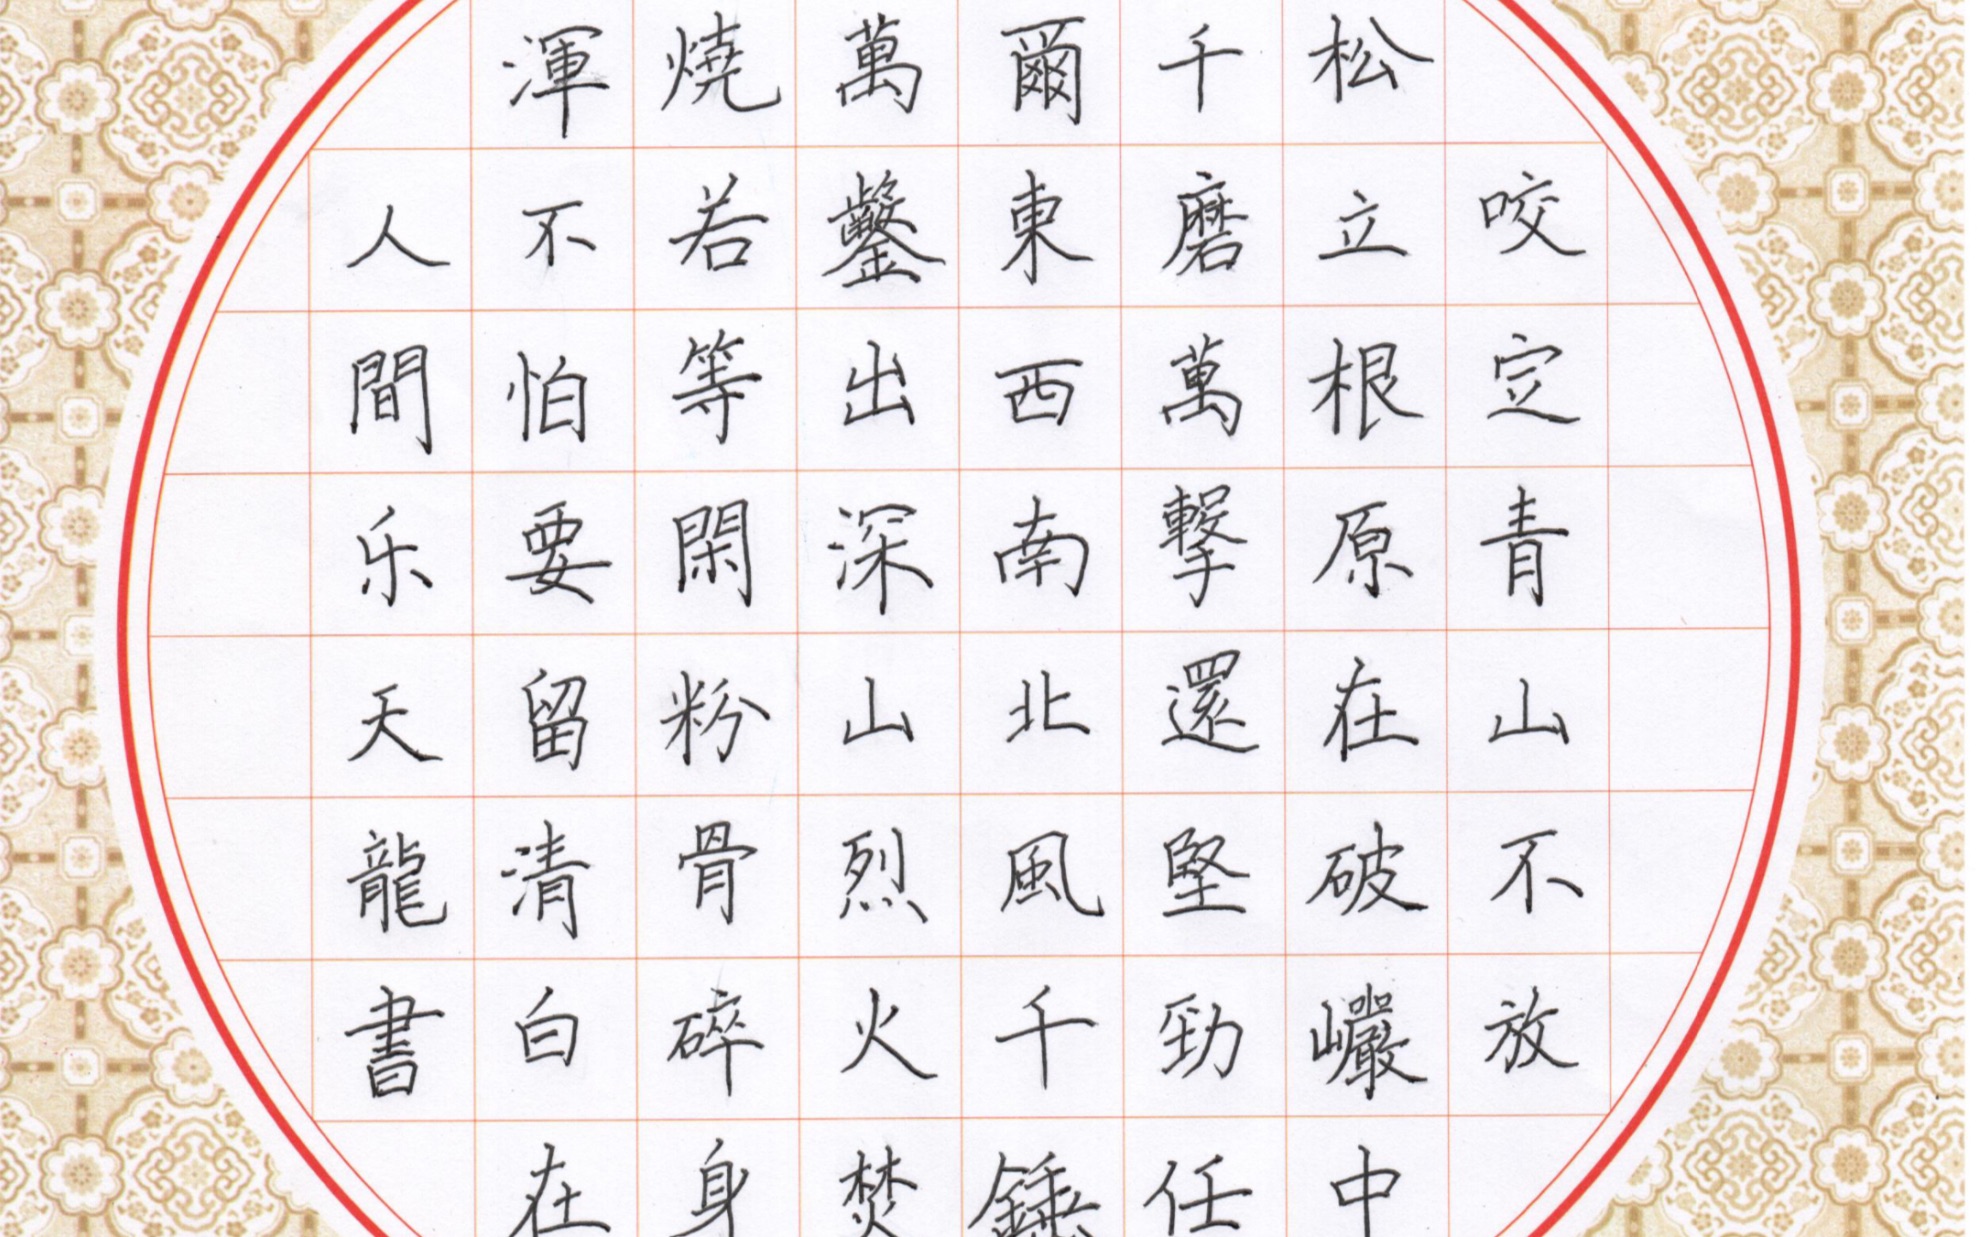 咬定青山不放
松立根原在破巖中
千磨萬擊還堅勁任
爾東西南北風千錘
萬鑿出深山烈火焚
燒若等閑粉骨碎身
渾不怕要留清白在
人間乐天龍書